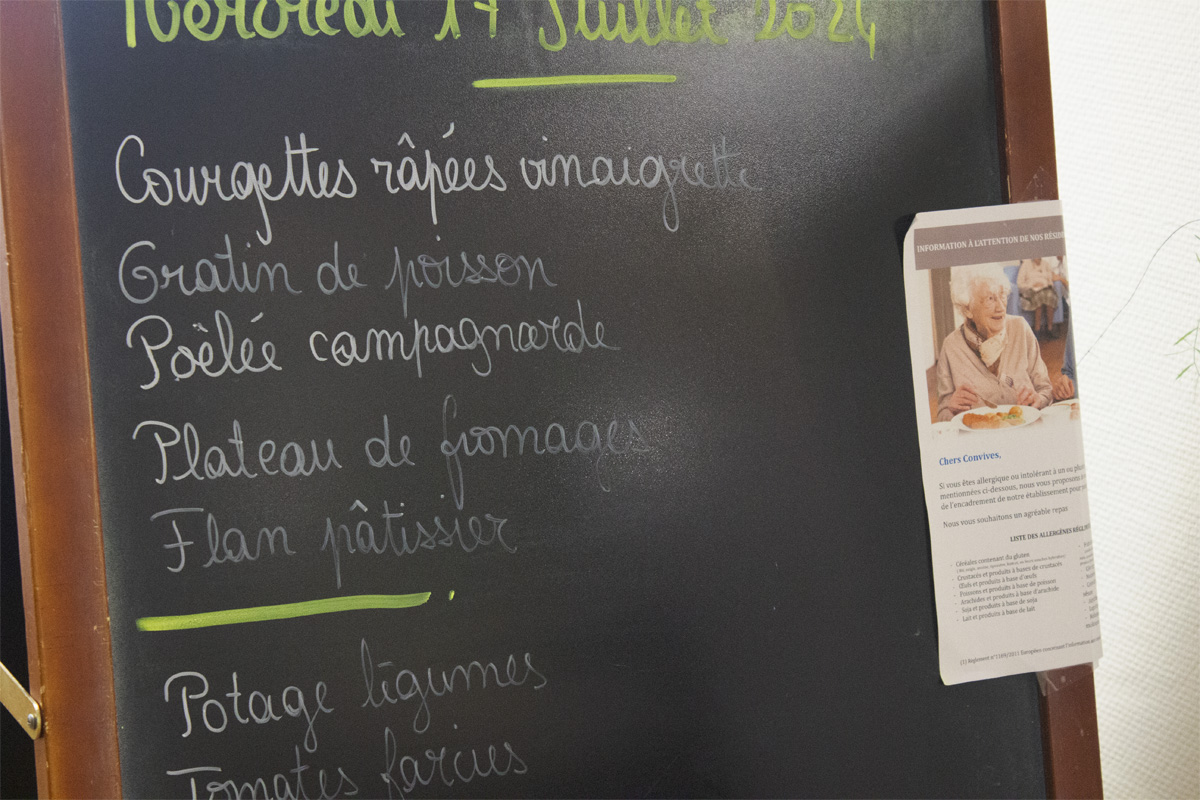 Mercredi 17 Juillet 2024
Courgettes râpées vinaigrette
Gratin de poisson
Poêlée campagnarde
Plateau de fromages
Flan pâtissier
Potage légumes
Tomates farcies
INFORMATION À L'ATTENTION DE NOS
Chers Convives,
Si vous êtes allergique ou intolérant à un ou
mentionnées ci-dessous, nous vous proposons
de l'encadrement de notre établissement pour
Nous vous souhaitons un agréable repas
LISTE DES ALLERGÈNES
- Céréales contenant du gluten
- Crustacés et produits à bases de crustacés
- Œufs et produits à base d'œufs
- Poissons et produits à base de poisson
- Arachides et produits à base d'arachide
- Soja et produits à base de soja
- Lait et produits à base de lait
(1) Règlement n°1169/2011 Européen concernant l'information